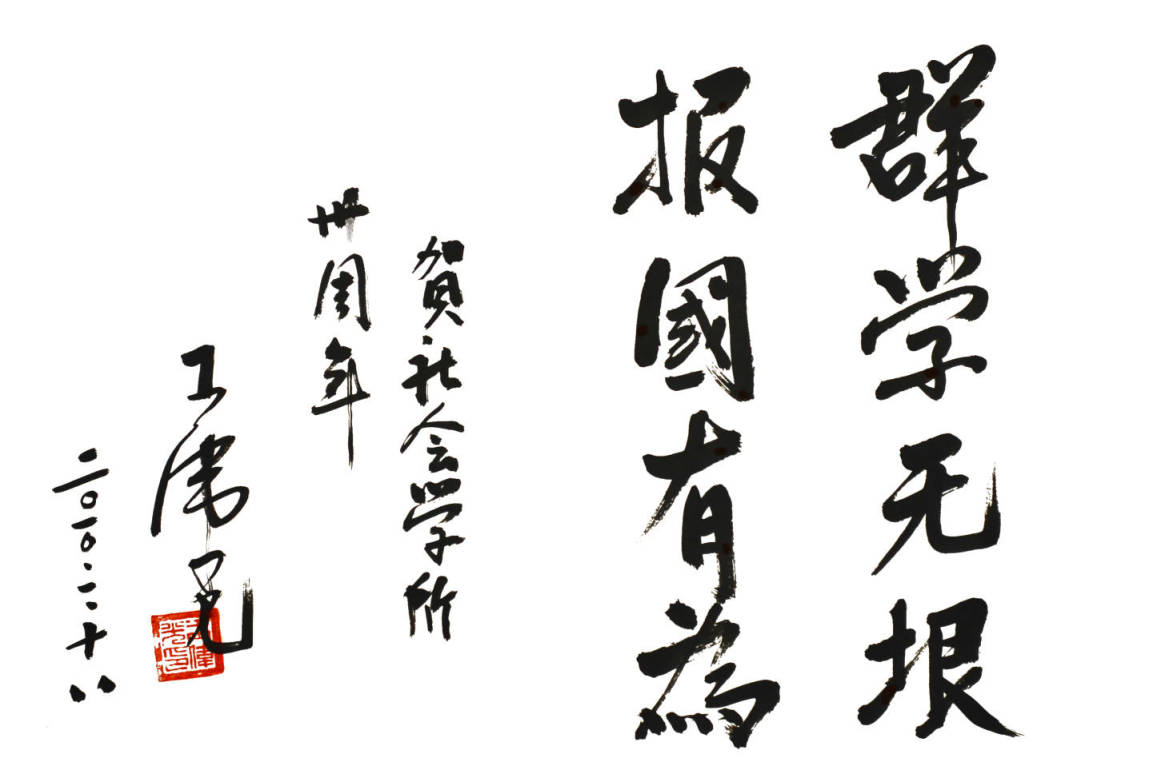 群学无垠
报國有為
贺社会学所
卅周年
王偉光
二〇一〇.一.十八